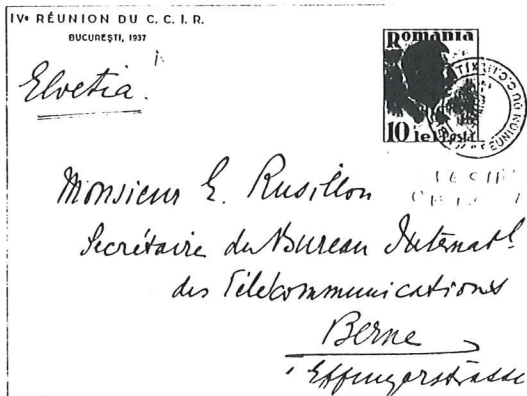 IVe RÉUNION DU C. C. I. R.
BUCUREȘTI, 1937
Elvetia
Romania
10 lei Posta
RÉUNION DU C.C.I.R.
Monsieur E. Rusillon
Secrétaire du Bureau Internatl.
des Télécommunications
Berne
Effingerstrasse